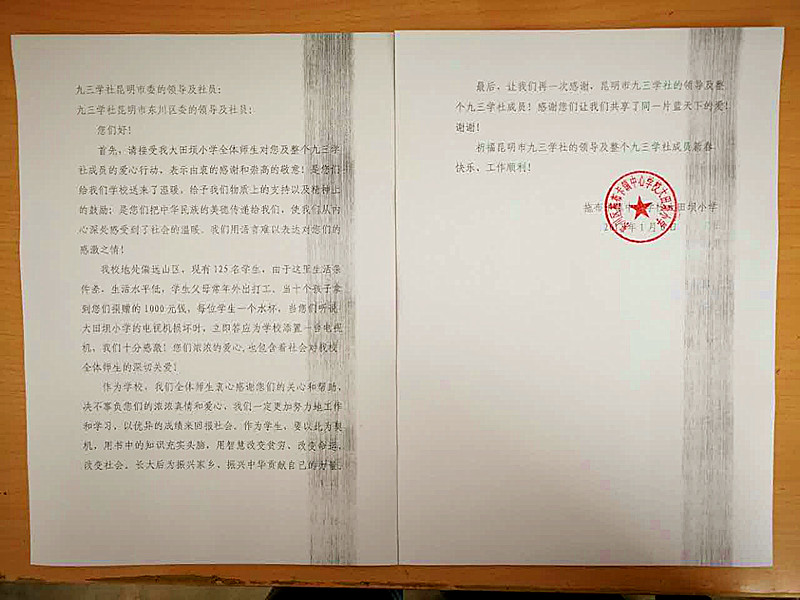 九三学社昆明市委的领导及社员：
九三学社昆明市东川区委的领导及社员：
您们好！
首先，请接受我大田坝小学全体师生对您及整个九三学
社成员的爱心行动，表示由衷的感谢和崇高的敬意！是您们
给我们学校送来了温暖，给予我们物质上的支持以及精神上
的鼓励；是您们把中华民族的美德传递给我们，使我们从内
心深处感受到了社会的温暖。我们用语言难以表达对您们的
感激之情！
我校地处偏远山区，现有125名学生，由于这里生活条
件差，生活水平低，学生父母常年外出打工。当十个孩子拿
到您们捐赠的1000元钱，每位学生一个水杯，当您们听说
大田坝小学的电视机损坏时，立即答应为学校添置一台电视
机，我们十分感激！您们浓浓的爱心,也包含着社会对我校
全体师生的深切关爱！
作为学校，我们全体师生衷心感谢您们的关心和帮助，
决不事负您们的浓浓真情和爱心，我们一定更加努力地工作
和学习，以优异的成绩来回报社会。作为学生，要以此为契
机，用书中的知识充实头脑，用智慧改变贫穷、改变命运，
改变社会。长大后为振兴家乡，振兴中华贡献自己的力量。
最后，让我们再一次感谢，昆明市九三学社的领导及整
个九三学社成员！感谢您们让我们共享了同一片蓝天下的爱！
谢谢！
祈福昆明市九三学社的领导及整个九三学社成员新春
快乐、工作顺利！
拖布卡镇中心学校大田坝小学
1月 日
东川区拖布卡镇中心学校大田坝小学